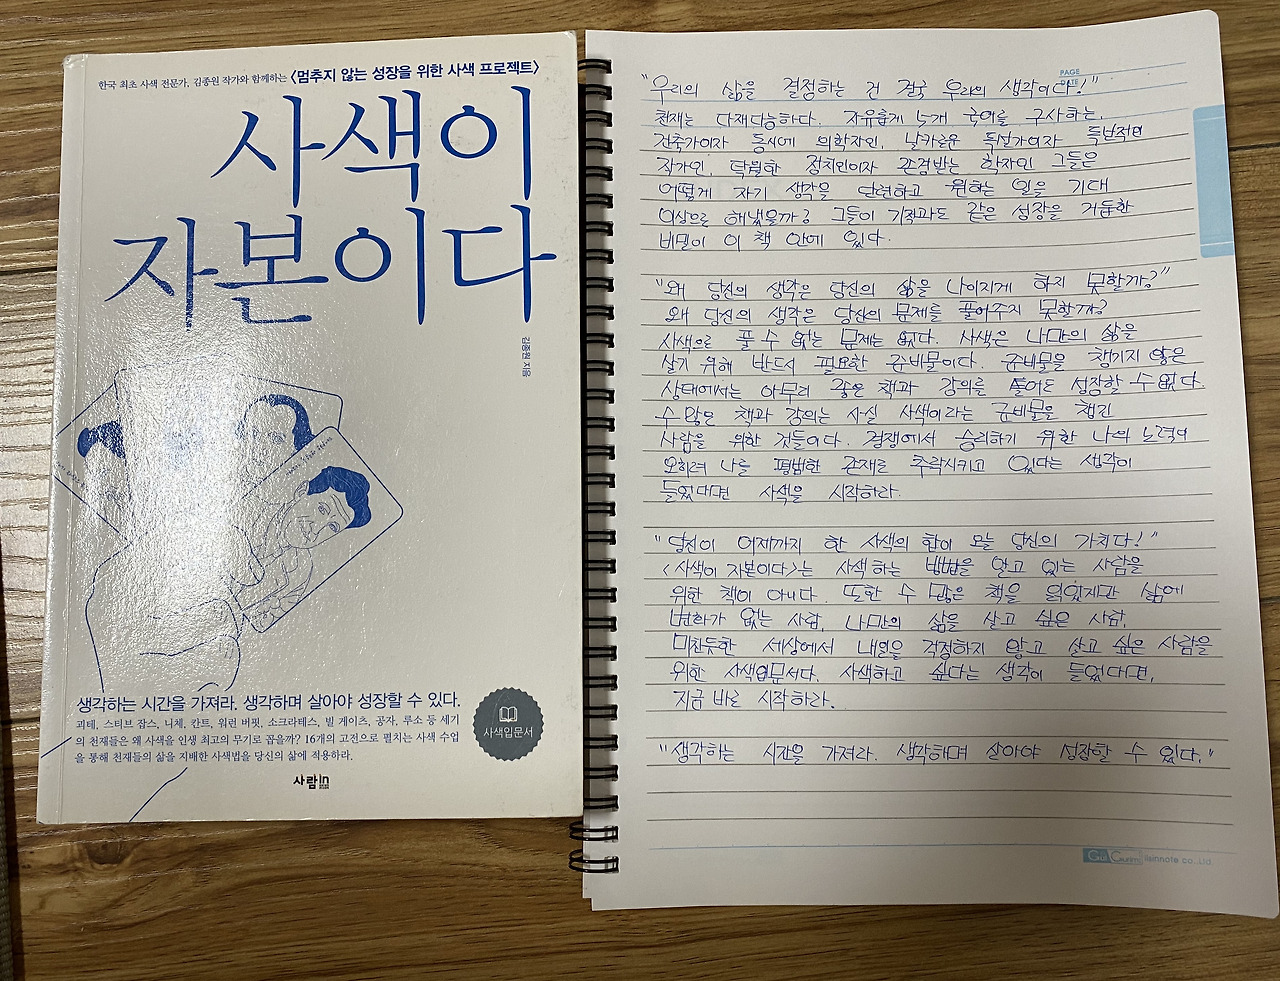 한국 최초 사색 전문가, 김종원 작가와 함께하는 <멈추지 않는 성장을 위한 사색 프로젝트>
사색이
자본이다
김종원 지음
생각하는 시간을 가져라. 생각하며 살아야 성장할 수 있다.
괴테, 스티브 잡스, 니체, 칸트, 워런 버핏, 소크라테스, 빌 게이츠, 공자, 루소 등 세기
의 천재들은 왜 사색을 인생 최고의 무기로 꼽을까? 16개의 고전으로 펼치는 사색 수업
을 통해 천재들의 삶을 지배한 사색법을 당신의 삶에 적용하라.
사색입문서
사람in
PAGE
DATE
"우리의 삶을 결정하는 건 결국 우리의 생각이다!"
천재는 다재다능하다. 자유롭게 5개 국어를 구사하는,
건축가이자 동시에 의학자인, 날카로운 독설가이자 독보적인
작가인, 탁월한 정치인이자 존경받는 학자인 그들은
어떻게 자기 생각을 단련하고 원하는 일을 기대
이상으로 해냈을까? 그들이 기적과도 같은 성장을 거둡한
비밀이 이 책 안에 있다.
"왜 당신의 생각은 당신의 삶을 나아지게 하지 못할까?"
왜 당신의 생각은 당신의 문제를 풀어주지 못할까?
사색으로 풀 수 없는 문제는 없다. 사색은 나만의 삶을
살기 위해 반드시 필요한 준비물이다. 준비물을 챙기지 않은
상태에서는 아무리 좋은 책과 강의를 들어도 성장할 수 없다.
수 많은 책과 강의는 사실 사색이라는 준비물을 챙긴
사람을 위한 것들이다. 경쟁에서 승리하기 위한 나의 노력이
오히려 나를 평범한 존재로 추락시키고 있다는 생각이
들었다면 사색을 시작하라.
"당신이 어제까지 한 사색의 합이 오늘 당신의 가치다!"
<사색이 자본이다>는 사색 하는 방법을 알고 있는 사람을
위한 책이 아니다. 또한 수 많은 책을 읽었지만 삶에
변화가 없는 사람, 나만의 삶을 살고 싶은 사람,
퍽퍽한 세상에서 내일을 걱정하지 않고 살고 싶은 사람을
위한 사색입문서다. 사색하고 싶다는 생각이 들었다면,
지금 바로 시작하라.
"생각하는 시간을 가져라. 생각하며 살아야 성장할 수 있다."
Gaul Gurim ilsinnote co.,Ltd.